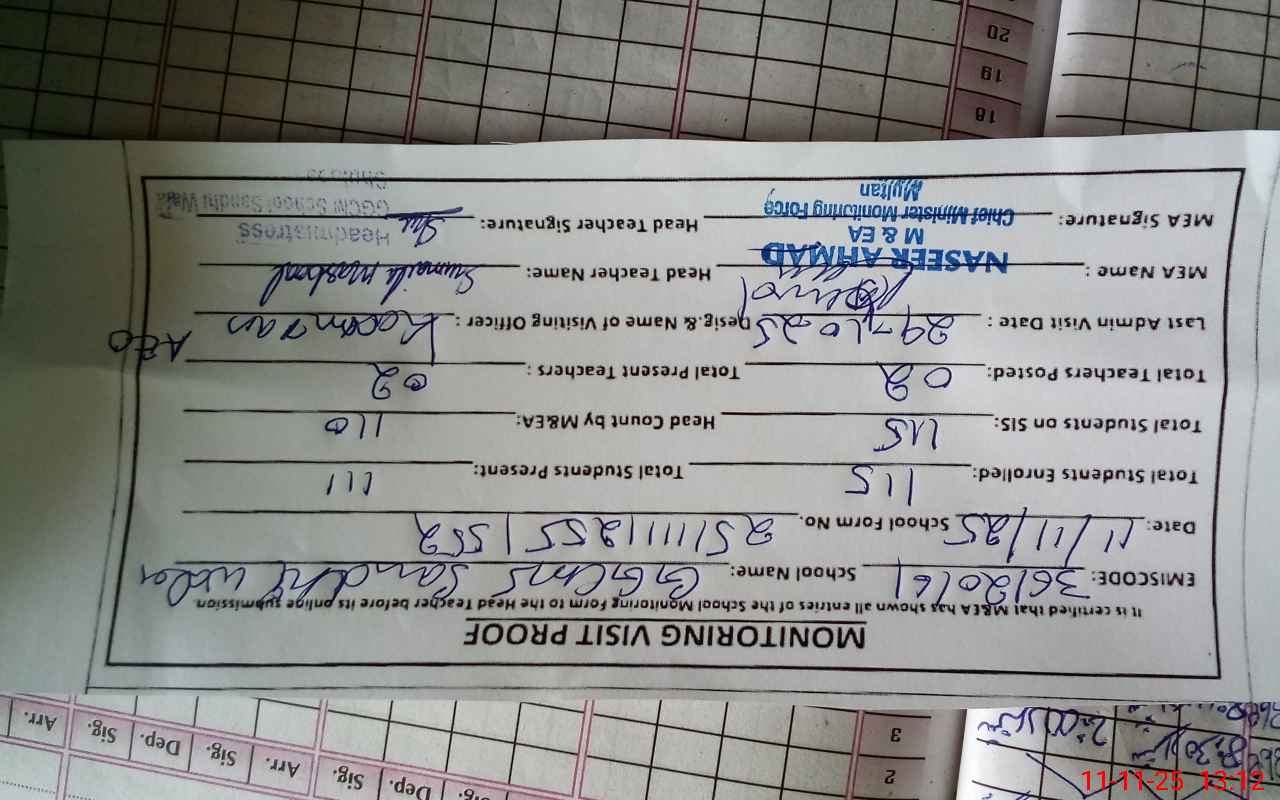 MONITORING VISIT PROOF
It is certified that M&EA has shown all entries of the School Monitoring Form to the Head Teacher before its online submission
EMISCODE: 36120161 School Name: GGCMS Sandhi wala
Date: 11/11/25 School Form No. 2511112551552
Total Students Enrolled: 115 Total Students Present: 111
Total Students on SIS: 115 Head Count by M&EA: 110
Total Teachers Posted: 02 Total Present Teachers : 02
Last Admin Visit Date : 29-10-25 Desig.& Name of Visiting Officer : AEO
MEA Name : Head Teacher Name:
NASEER AHMAD
M & EA
Chief Minister Monitoring Force
Multan
MEA Signature: Head Teacher Signature:
Headmistress
GGCM School Sandhi Wala
20
19
18
3
2
Arr. Sig. Dep. Sig. Arr. Sig. Dep. Sig.
11-11-25 13:12